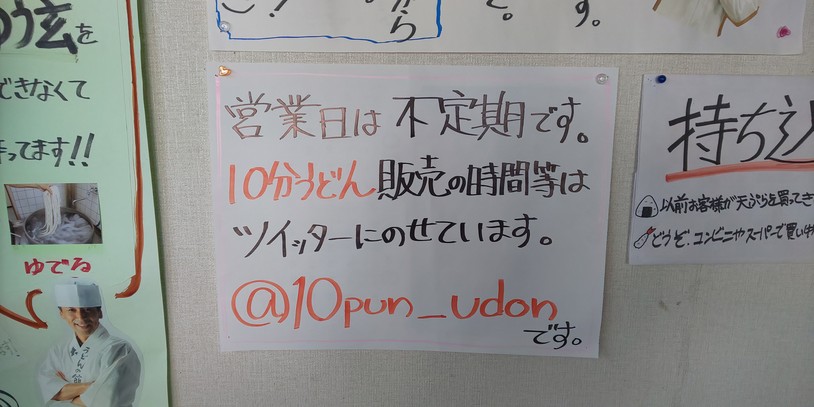 のう玄を
できなくて
待ってます!!
ゆでる
から
ど。
す。
営業日は不定期です。
10分うどん販売の時間等は
ツイッターにのせています。
@10pun_udon
です。
持ち込
以前お客様が天ぷらを買ってき
どうぞ、コンビニやスーパーで買い